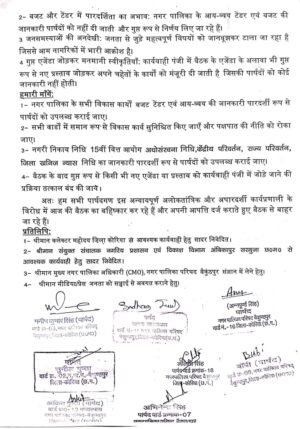 2- बजट और टेंडर में पारदर्शिता का अभाव: नगर पालिका के आय-व्यय टेंडर एवं बजट की
जानकारी पार्षदों को नहीं दी जाती और गुप्त रूप से निर्णय लिए जा रहे हैं।
3 जनसमस्याओं की अनदेखी: जनता से जुड़े महत्वपूर्ण विषयों को जानबूझकर टाला जा रहा है
जिससे आम नागरिकों में भारी आक्रोश है।
4 गुप्त एजेंडा जोड़कर मनमानी स्वीकृतियाँ: कार्यवाही पंजी में बैठक के एजेन्डा के अलावा भी गुप्त
रूप से नए प्रस्ताव जोड़कर अपने चहेतों के कार्यों को मंजूरी दी जाती है जिसकी पार्षदों को कोई
जानकारी नहीं होती।
हमारी माँगें:
1- नगर पालिका के सभी विकास कार्यों बजट टेंडर एवं आय-व्यय की जानकारी पारदर्शी रूप से
पार्षदों को उपलब्ध कराई जाए।
2- सभी वार्डों में समान रूप से विकास कार्य सुनिश्चित किए जाएँ और पक्षपात की नीति को रोका
जाए।
3- नगरीय निकाय निधि 15वीं वित्त आयोग अधोसंरचना निधि,केंद्रीय परिवर्तन, राज्य परिवर्तन,
जिला खनिज न्यास निधि का जानकारी पारदर्शी रूप से पार्षदों को उपलब्ध कराई जाए।
4- बैठक के बाद गुप्त रूप से किसी भी नए एजेंडा या प्रस्ताव को कार्यवाही पंजी में जोड़े जाने की
प्रक्रिया तत्काल बंद की जाये।
अतः हम सभी पार्षदगण इस अन्यायपूर्ण अलोकतांत्रिक और अपारदर्शी कार्यप्रणाली के
विरोध में आज की बैठक का बहिष्कार कर रहे हैं और अपनी आपत्ति दर्ज कराते हुए बैठक से बाहर
जा रहे हैं।
प्रतिलिपि:
1- श्रीमान कलेक्टर महोदय जिला कोरिया छ0ग0 आवश्यक कार्यवाही हेतु सादर निवेदित।
2- श्रीमान संयुक्त संचालक नगरीय प्रशासन एवं विकास विभाग अंबिकापुर सरगुजा छ0ग0 से
आवश्यक कार्यवाही हेतु सादर निवेदित।
3- श्रीमान मुख्य नगर पालिका अधिकारी (CMO), नगर पालिका परिषद बैकुंठपुर संज्ञान में लेने हेतु।
4- श्रीमान मीडिया/प्रेस जनता को सच्चाई से अवगत कराने हेतु।
(पार्षद)
(अन्नपूर्णा सिंह)
पार्षद
सुनीता गुप्ता
(पार्षद)
अभिनेन्द्र सिंह
पार्षद वार्ड क्रमांक-07